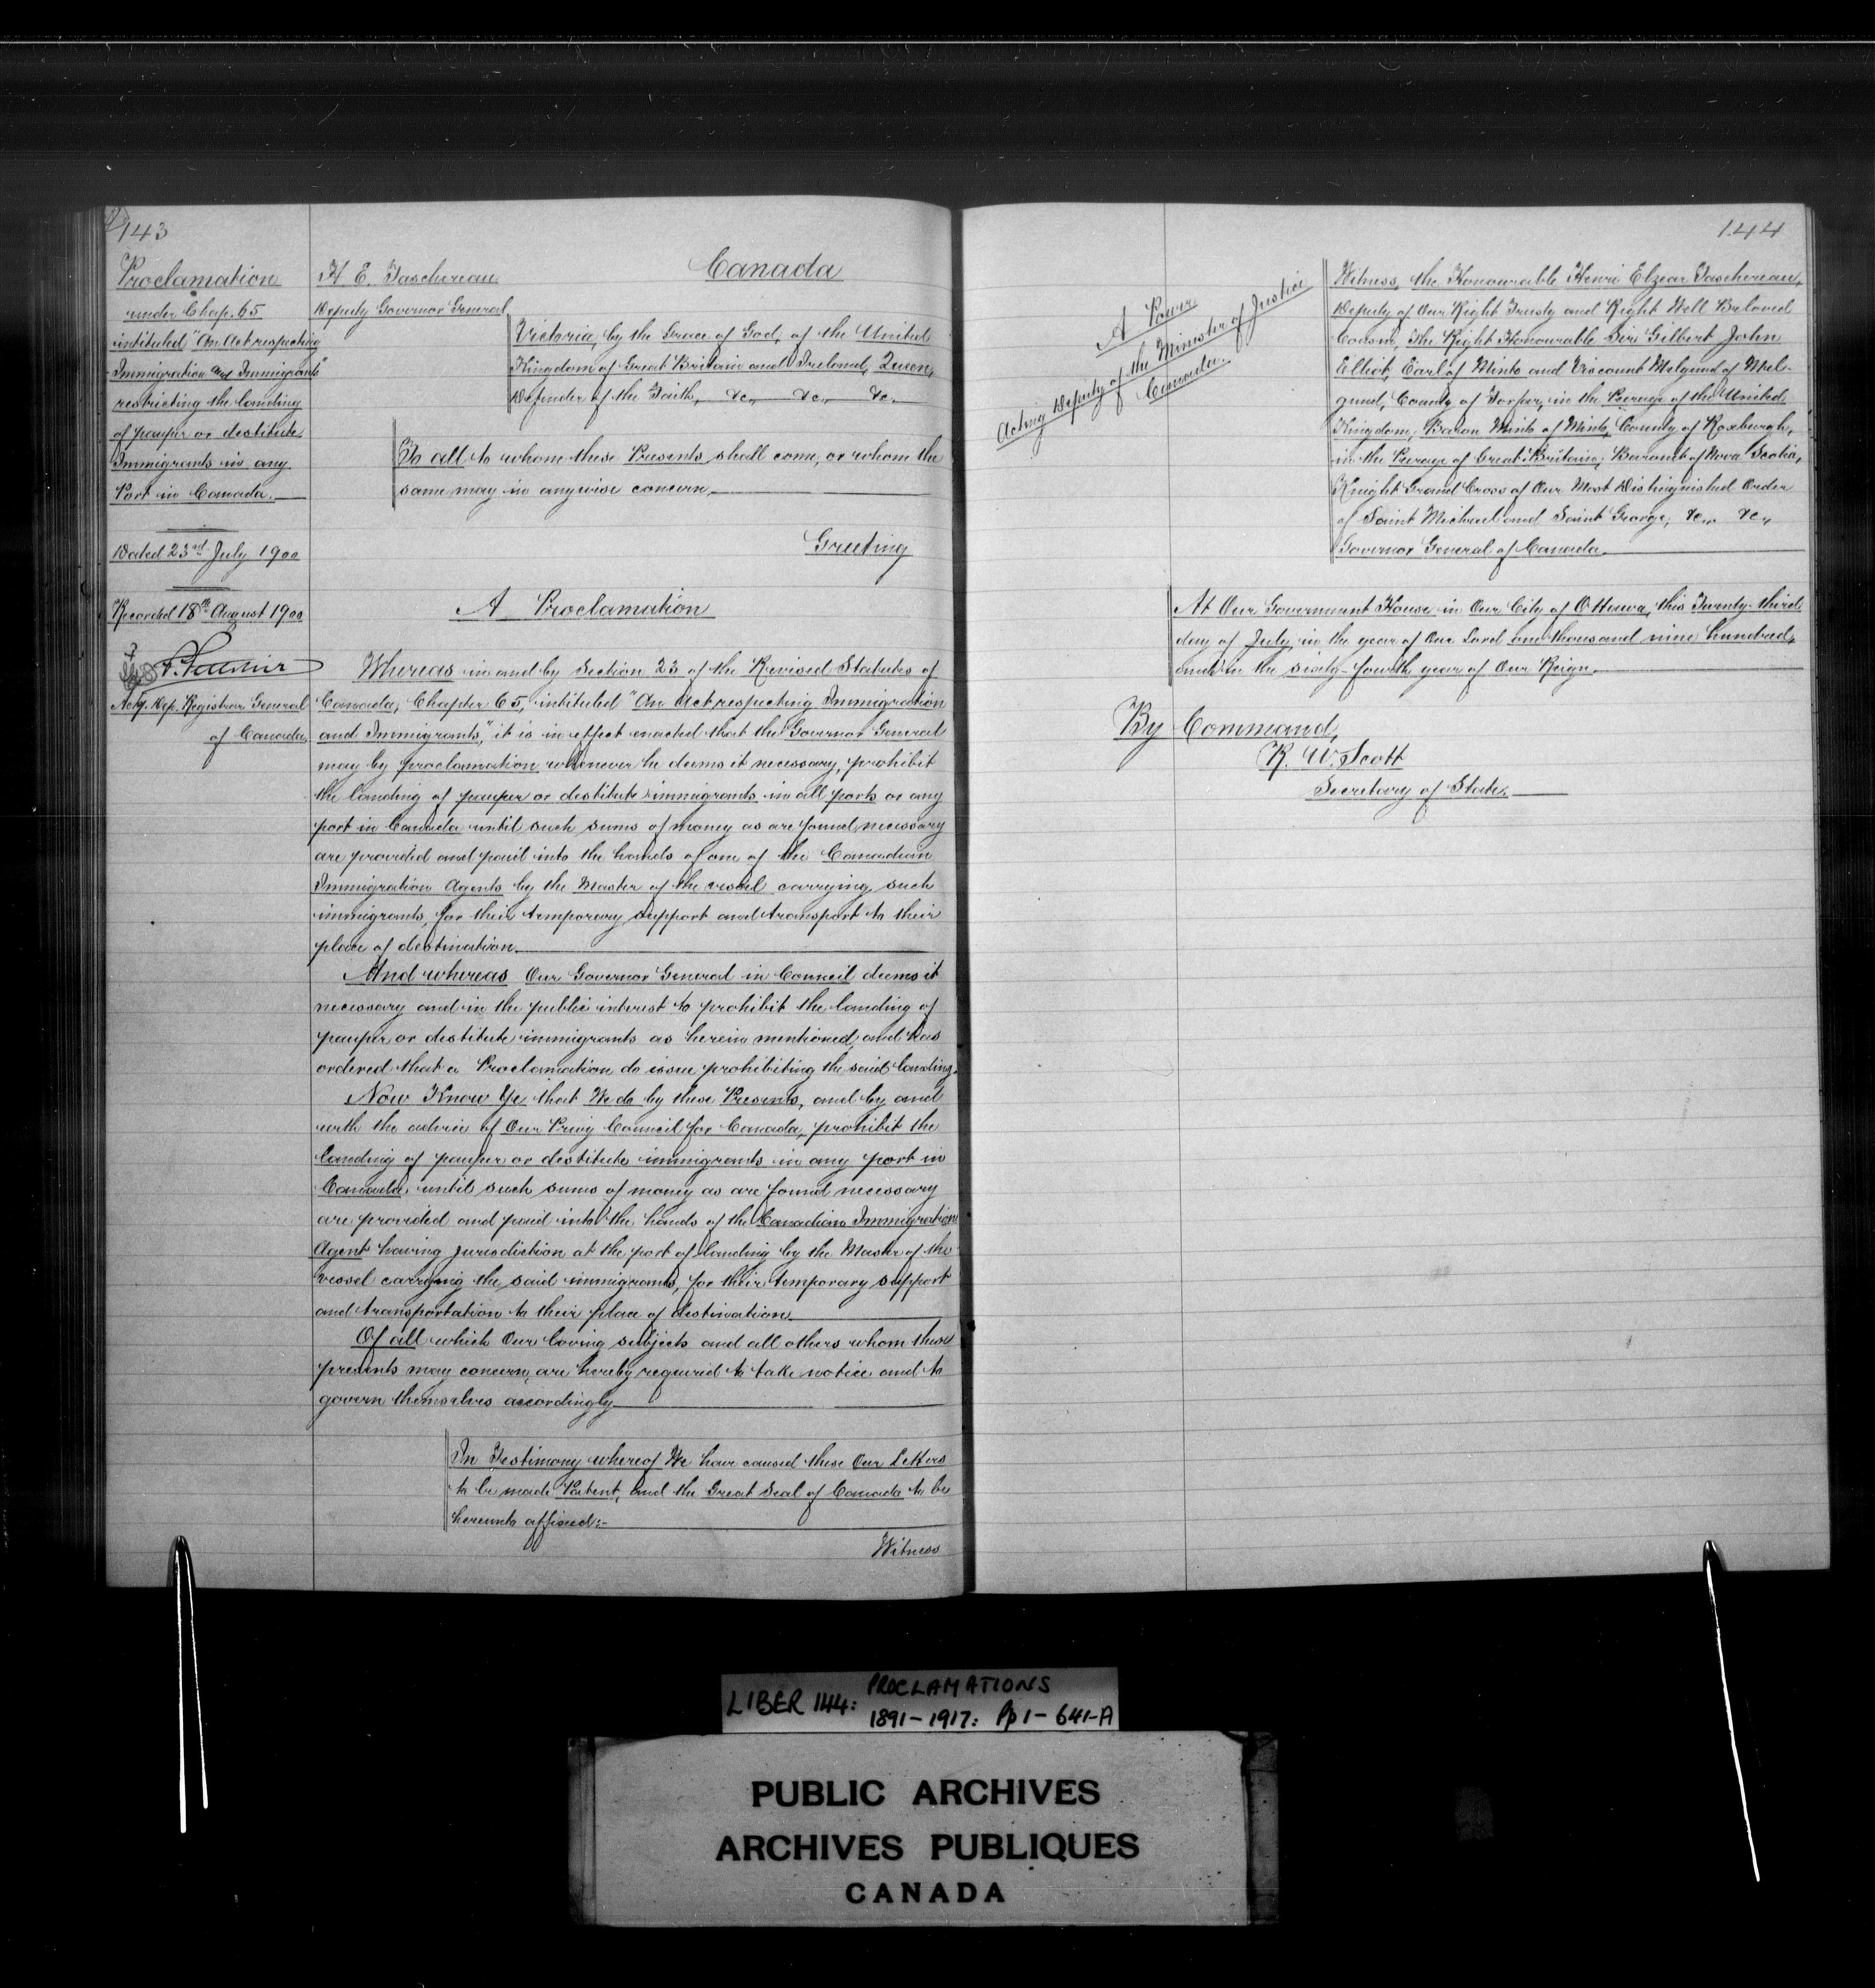 143
Proclamation
under Chap. 65
intituled "An Act respecting
Immigration and Immigrants"
restricting the landing
of pauper or destitute
Immigrants in any
Port in Canada.
Dated 23rd July 1900
Recorded 18th August 1900
Actg. Dep. Registrar General
of Canada.
H. E. Taschereau
Deputy Governor General
Canada
Victoria, by the Grace of God, of the United
Kingdom of Great Britain and Ireland, Queen,
Defender of the Faith, &c., &c., &c.
To all to whom these Presents shall come, or whom the
same may in anywise concern,
Greeting
A Proclamation
Whereas in and by Section 23 of the Revised Statutes of
Canada, Chapter 65, intituled "An Act respecting Immigration
and Immigrants", it is in effect enacted that the Governor General
may by proclamation whenever he deems it necessary, prohibit
the landing of pauper or destitute immigrants in all ports or any
port in Canada until such sums of money as are found necessary
are provided and paid into the hands of one of the Canadian
Immigration Agents by the Master of the vessel carrying such
immigrants, for their temporary support and transport to their
place of destination.
And whereas Our Governor General in Council deems it
necessary and in the public interest to prohibit the landing of
pauper or destitute immigrants as herein mentioned, and has
ordered that a Proclamation do issue prohibiting the said landing.
Now Know Ye that We do by these Presents, and by and
with the advice of Our Privy Council for Canada, prohibit the
landing of pauper or destitute immigrants in any port in
Canada, until such sums of money as are found necessary
are provided and paid into the hands of the Canadian Immigration
Agent having jurisdiction at the port of landing by the Master of the
vessel carrying the said immigrants, for their temporary support
and transportation to their place of destination.
Of all which Our loving subjects and all others whom these
presents may concern, are hereby required to take notice and to
govern themselves accordingly
In Testimony whereof We have caused these Our Letters
to be made Patent, and the Great Seal of Canada to be
hereunto affixed:-
Witness
144
A Power
Acting Deputy of the Minister of Justice
Canada.
Witness, the Honourable Henri Elzear Taschereau,
Deputy of Our Right Trusty and Right Well Beloved
Cousin, The Right Honourable Sir Gilbert John
Elliot, Earl of Minto and Viscount Melgund of Mel-
gund, County of Forfar, in the Peerage of the United
Kingdom, Baron Minto of Minto, County of Roxburgh,
in the Peerage of Great Britain, Baronet of Nova Scotia,
Knight Grand Cross of Our Most Distinguished Order
of Saint Michael and Saint George, &c., &c.,
Governor General of Canada.
At Our Government House in Our City of Ottawa, this Twenty-third
day of July, in the year of Our Lord one thousand nine hundred,
and in the sixty-fourth year of Our Reign.
By Command,
R. W. Scott
Secretary of State.
LIBER 144: PROCLAMATIONS
1891-1917: Pp 1-641-A
PUBLIC ARCHIVES
ARCHIVES PUBLIQUES
CANADA